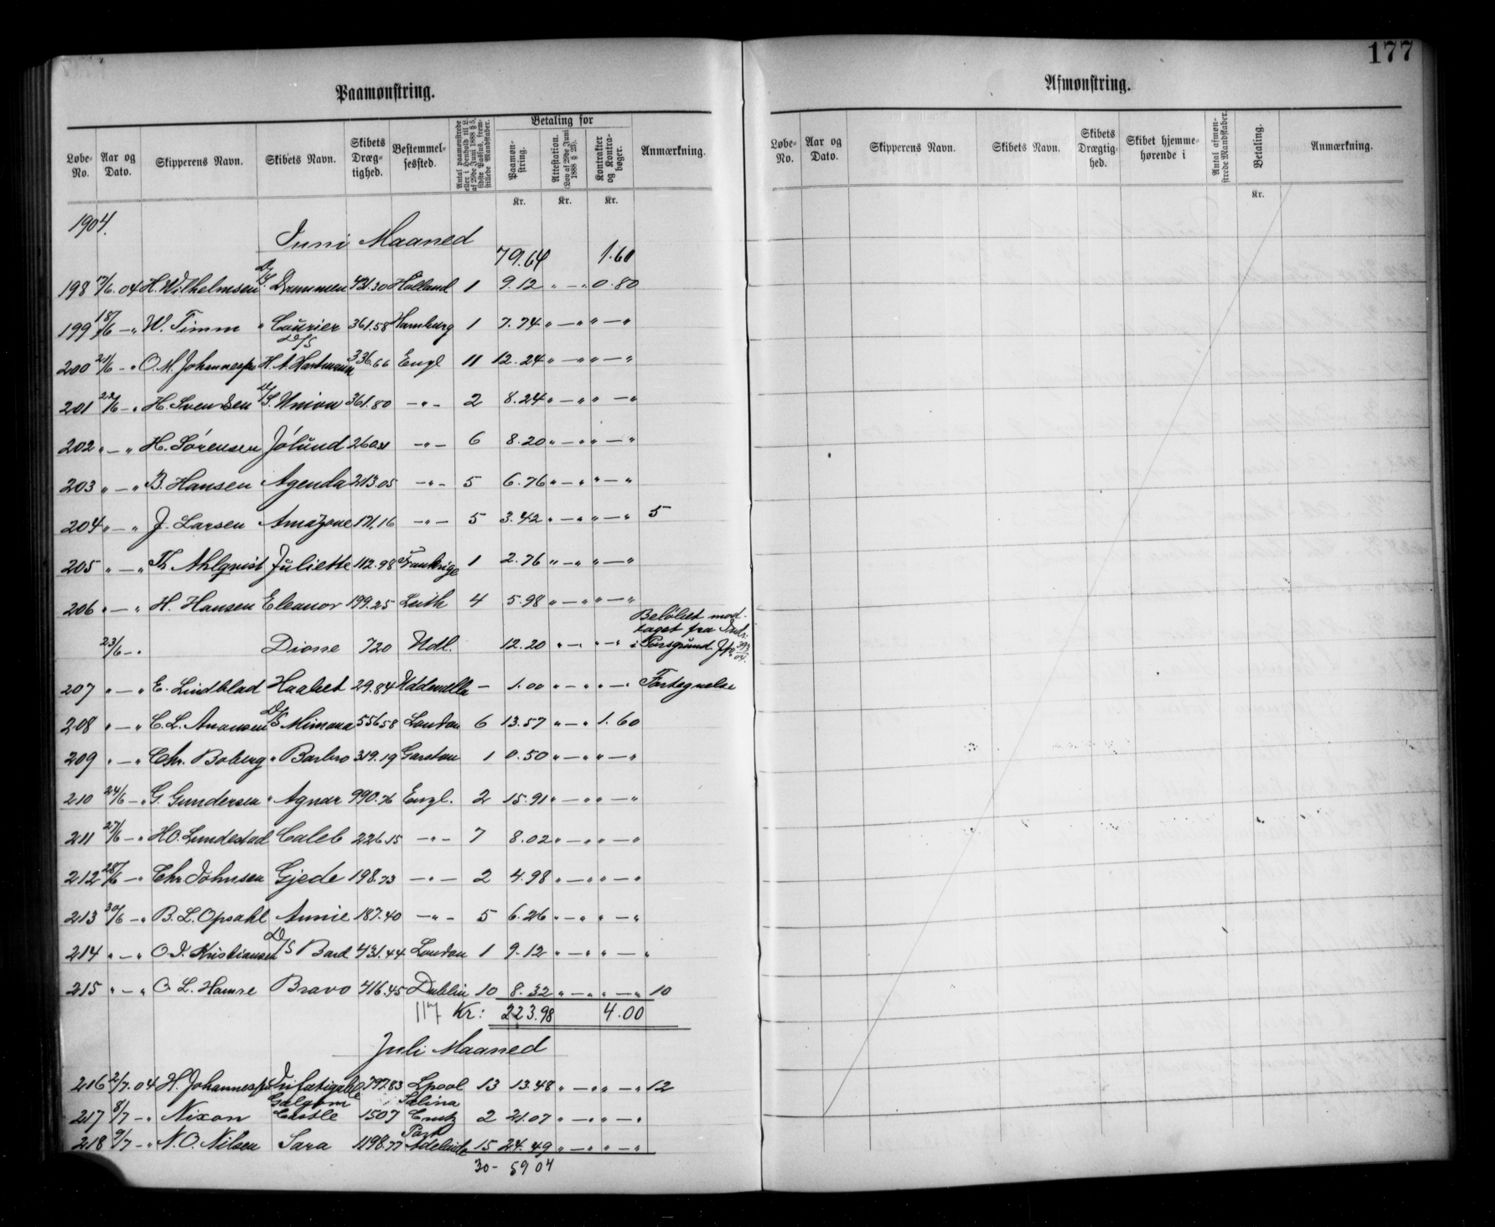 177
Paamønstring.
Løbe-No. Aar og Dato. Skipperens Navn. Skibets Navn. Skibets Dræg-tighed. Bestemmel-sessted. Antal paamønstrede eller i Henhold til L. af 29de Juni 1888 § 5, sidste Passus, frem-stillede Mandskaber. Betaling for Paamøn-string. Attestation. (Lov af 29de Juni 1888 § 25). Kontrakter og Kontra-bøger. Anmærkning.
Kr. Kr. Kr.
1904.
Juni Maaned
79.64 1.60
198 17/6. 04 H. Wilhelmsen D/S Drammen 431.30 Holland 1 9.12 „ — „ 0.80
199 18/6 — „ W. Timm „ Courier 361.58 Hamburg 1 7.74 „ — „ „ — „
200 21/6 — „ O. M. Johannessen D/S H. A. Hartmann 336.66 Engl 11 12.24 „ — „ „ — „
201 22/6 — „ H. Svendsen D/S. Union 361.80 — „ — 2 8.24 „ — „ „ — „
202 „ — „ H. Sörensen Jölund — „ — 6 8.20 „ — „ „ — „
203 „ — „ B. Hansen Agenda 213.05 — „ — 5 6.76 „ — „ „ — „
204 „ — „ J. Larsen Amazone 171.16 — „ — 5 3.42 „ — „ „ — „ 5
205 „ — „ Th. Ahlqvist Juliette 112.98 Frankrige 1 2.76 „ — „ „ — „
206 „ — „ H. Hansen Eleanor 199.25 Leith 4 5.98 „ — „ „ — „
23/6 — „ Dione 720 Udl. 12.20 „ — „ „ — „ Belöbet mod-
taget fra
i Porsgrund
207 „ — „ E. Lindblad Haabet 29.84 Uddevalla — 1.00 „ — „ „ — „ Fortegnelse
208 „ — „ C. L. Aronsen D/S Mimona 556.58 London 6 13.57 „ — „ 1.60
209 „ — „ Chr. Boberg „ Barbro 319.19 Garston 1 0.50 „ — „ „ — „
210 24/6 — „ G. Gundersen „ Agnar 990.76 Engl. 2 15.91 „ — „ „ — „
211 27/6 — „ H.O. Lundestad Caleb 226.15 — „ — 7 8.02 „ — „ „ — „
212 28/6 — „ Chr. Johnsen Gjede 198.73 — „ — 2 4.98 „ — „ „ — „
213 30/6 — „ B. L. Opsahl Annie 187.40 — „ — 5 6.26 „ — „ „ — „
214 „ — „ O. J. Kristiansen D/S Bard 431.44 London 1 9.12 „ — „ „ — „ „
215 „ — „ O. L. Hamre Bravo 416.45 Dublin 10 8.32 „ — „ „ — „ 10
117 Kr: 223.98 4.00
Juli Maaned
216 2/7. 04 H. Johannessen Indefatigable 797.83 Lpool 13 13.48 „ — „ „ — „ 12
217 8/7 — „ Nixon Galgorm Castle 1507 Salina Cruz 2 21.07 „ — „ „ — „
218 9/7 — „ N. O. Nilsen Sara 1198.77 Port Adelaide 15 24.49 „ — „ „ — „
30 — 59 04
Afmønstring.
Løbe-No. Aar og Dato. Skipperens Navn. Skibets Navn. Skibets Drægtig-hed. Skibet hjemme-hørende i Antal afmøn-strede Mandskaber. Betaling. Anmærkning.
Kr.